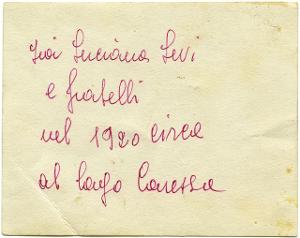 Zia Luciana Levi
e fratelli
nel 1920 circa
al lago Carezza